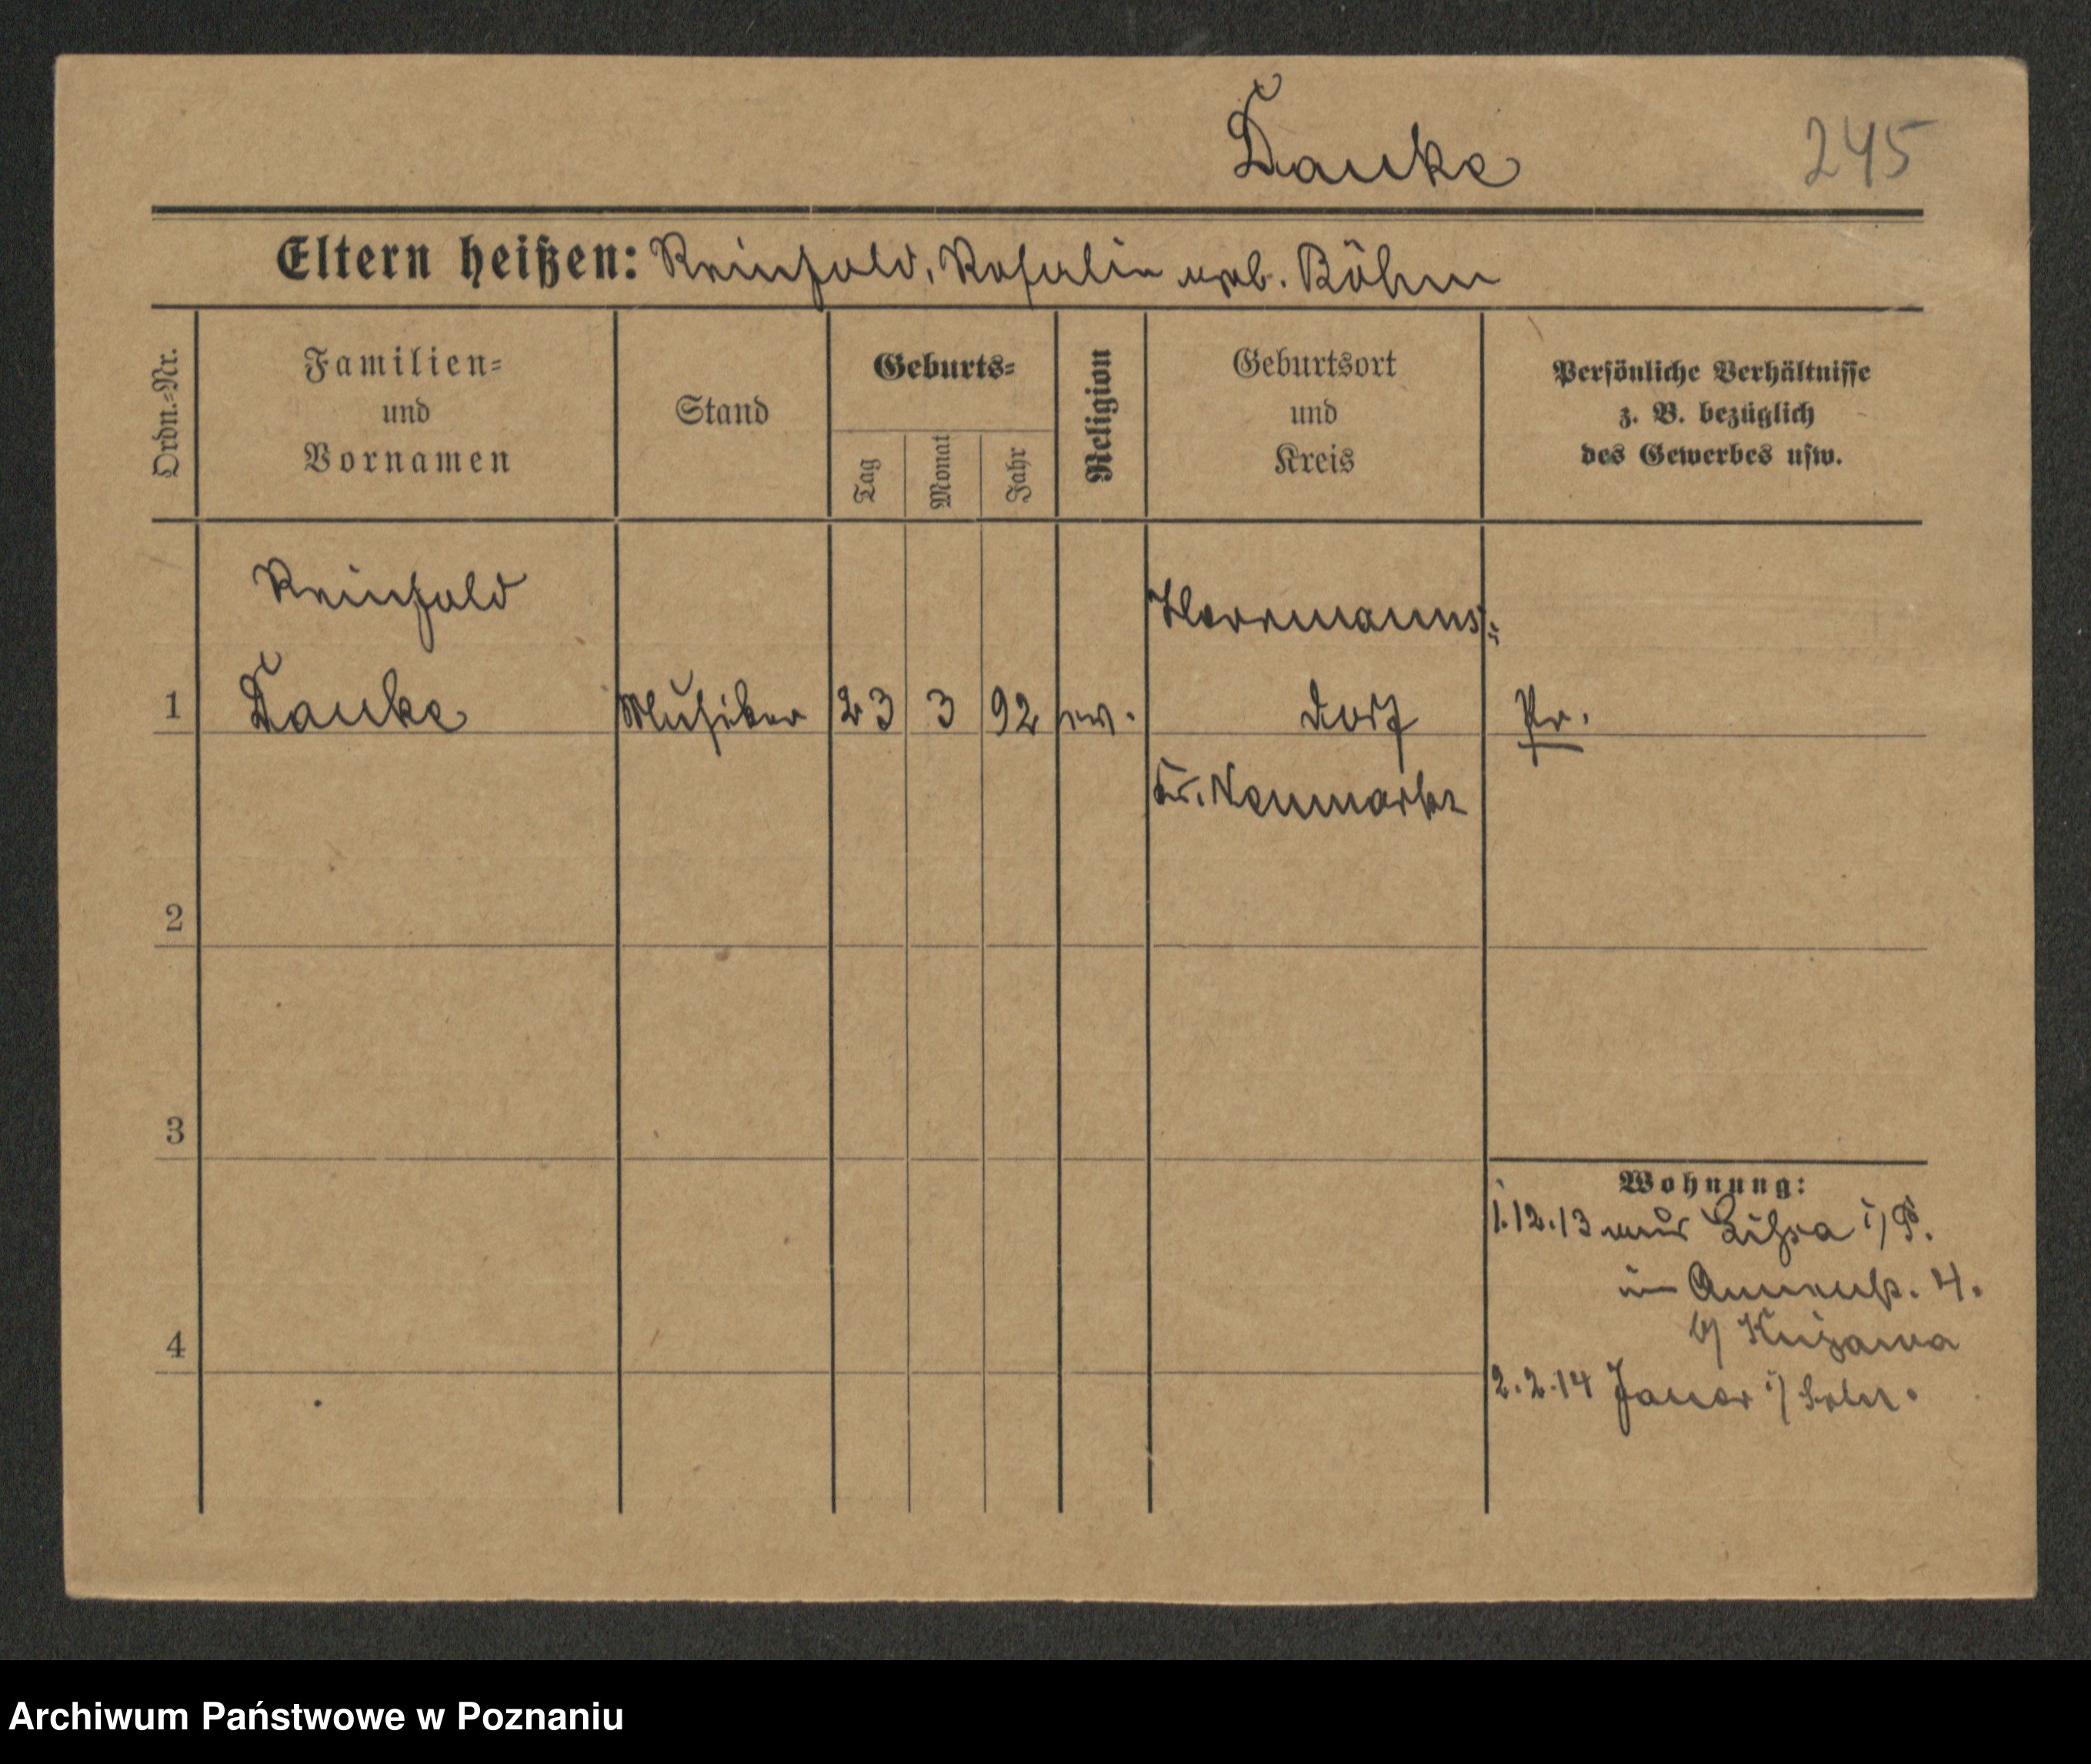 Dauke 245
Eltern heißen: Reinhold, Rosalie geb. Böhm
Ordn.-Nr.
Familien-
und
Vornamen
Stand
Geburts-
Tag
Monat
Jahr
Religion
Geburtsort
und
Kreis
Persönliche Verhältnisse
z. B. bezüglich
des Gewerbes usw.
Reinhold
Herrmanns-
1 Dauke Musiker 23 3 92 ev. dorf Pr.
Kr. Neumarkt
2
3
Wohnung:
1.12.13 aus Lissa i/P.
in Annenstr. 4.
b/ Kujawa
4
2.2.14 Jauer i/Schl.
Archiwum Państwowe w Poznaniu